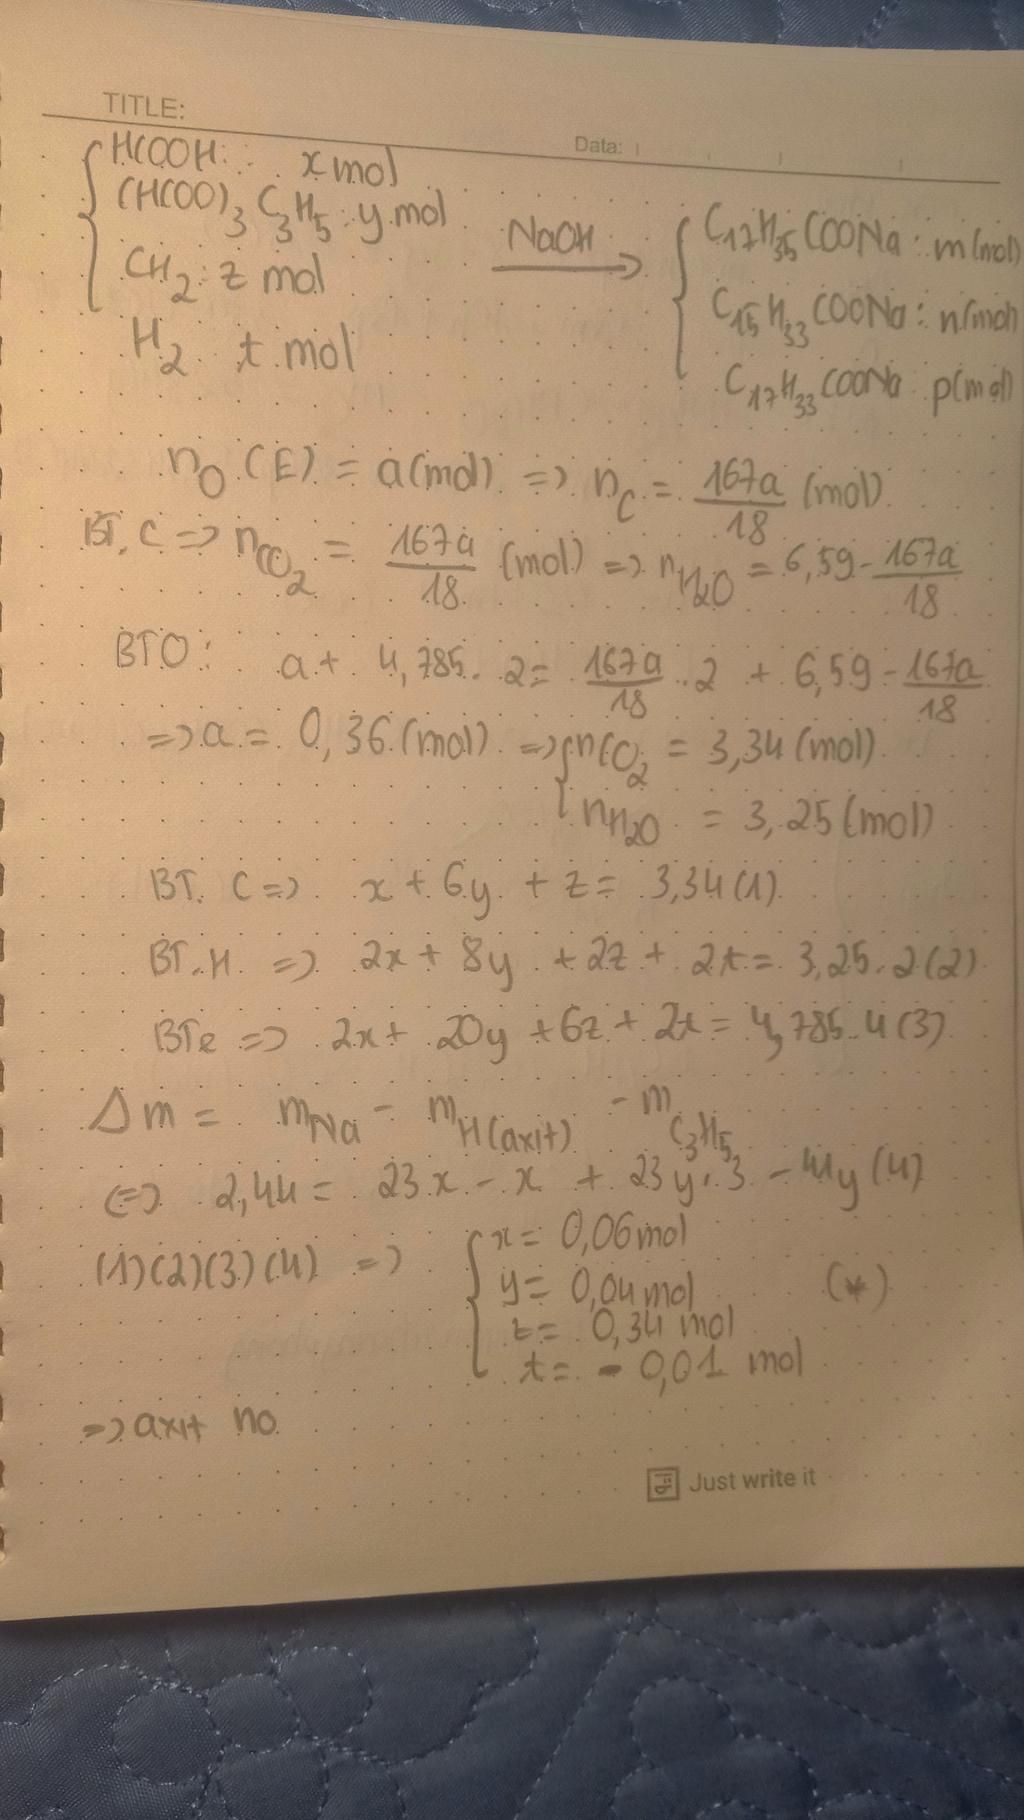 TITLE:
Data:
HCOOH: x mol
(HCOO)₃C₃H₅: y mol
CH₂: z mol
H₂ t mol
NaOH →
C₁₇H₃₅COONa: m(mol)
C₁₅H₃₃COONa: n(mol)
C₁₇H₃₃COONa: p(mol)
n_O (E) = a(mol) => n_C = 167a/18 (mol)
BT.C => n_CO₂ = 167a/18 (mol) => n_H₂O = 6,59 - 167a/18
BTO: a + 4,785. 2 = 167a/18 .2 + 6,59 - 167a/18
=> a = 0,36 (mol) => { nCO₂ = 3,34 (mol)
n_H₂O = 3,25 (mol)
BT. C => x + 6y + z = 3,34 (1)
BT.H => 2x + 8y + 2z + 2t = 3,25.2 (2)
BTe => 2x + 20y + 6z + 2t = 4,785.4 (3)
Δm = m_Na - m_H(axit) - m_C₃H₅
<=> 2,44 = 23x - x + 23y.3 - 41y (4)
(1)(2)(3)(4) => { x = 0,06 mol
y = 0,04 mol (*)
z = 0,34 mol
t = - 0,01 mol
=> axit no
Just write it